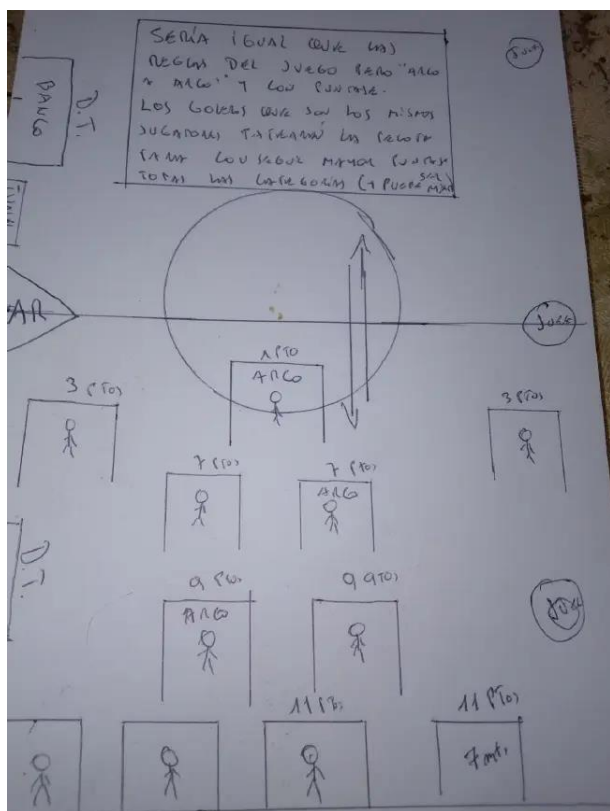 SERÍA IGUAL QUE LAS
REGLAS DEL JUEGO PERO "ARCO
A ARCO" Y CON PUNTAJE.
LOS GOLEROS QUE SON LOS MISMOS
JUGADORES TATRARÁN LA PELOTA
PARA CONSEGUIR MAYOR PUNTAJE
TODAS LAS CATEGORÍAS
JUEZ
D.T.
BANCO
AR
JUEZ
1 PTO
ARCO
3 PTOS
3 PTOS
7 PTOS
7 PTOS
ARCO
D.T.
9 PTOS
9 PTOS
ARCO
JUEZ
11 PTOS
11 PTOS
7 mt.